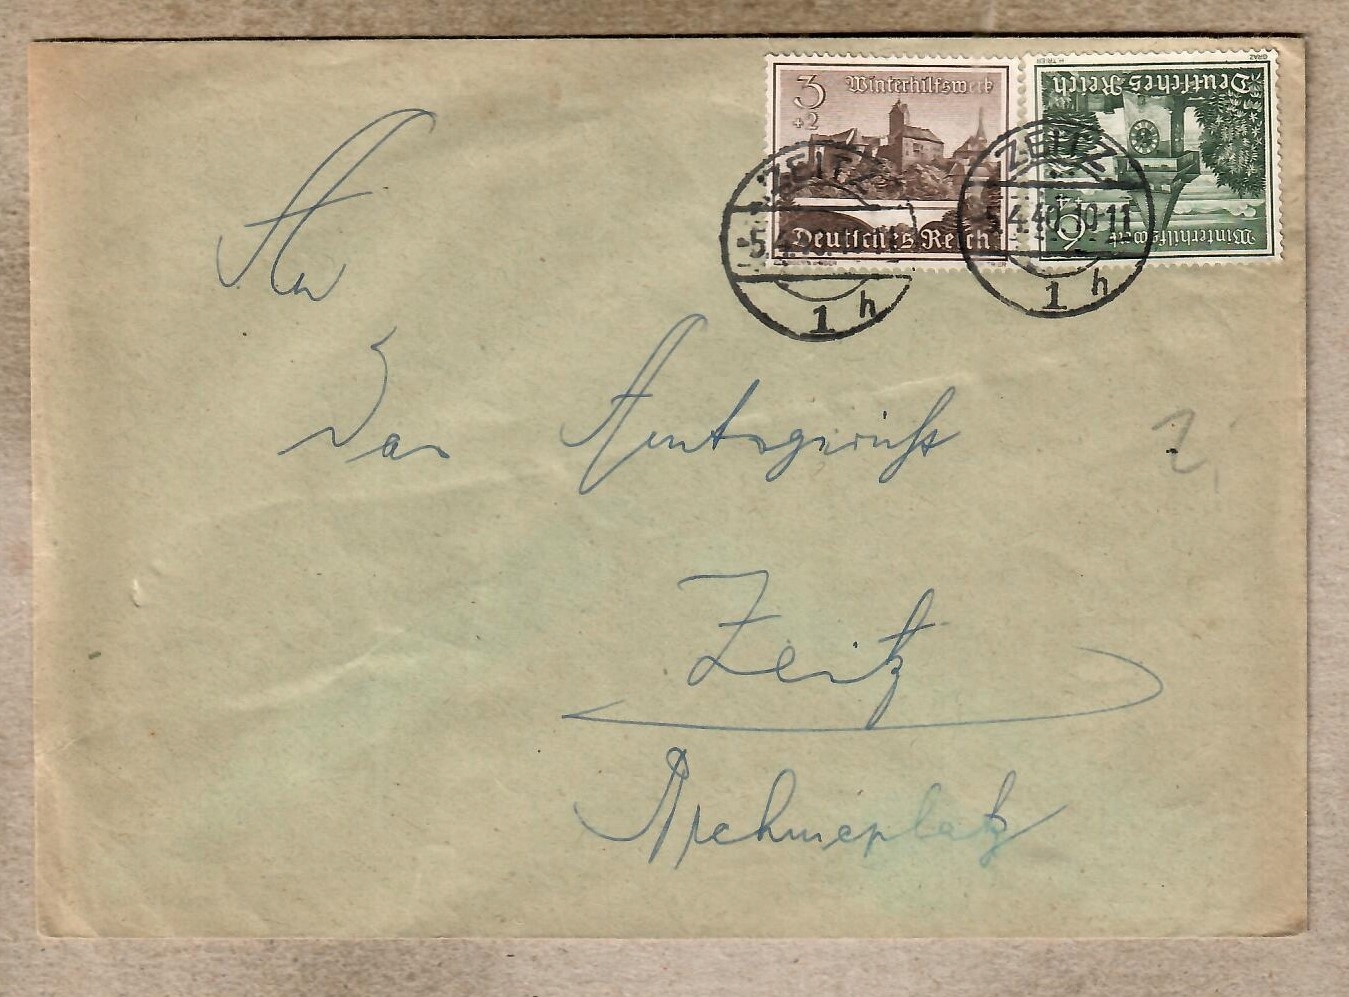 3 Winterhilfswerk
+2
Deutsches Reich
Deutsches Reich
6
Winterhilfswerk
ZEITZ
5.4.40.10-11
1 h
ZEITZ
5.4.40.10-11
1 h
An
Das Amtsgericht
Zeitz